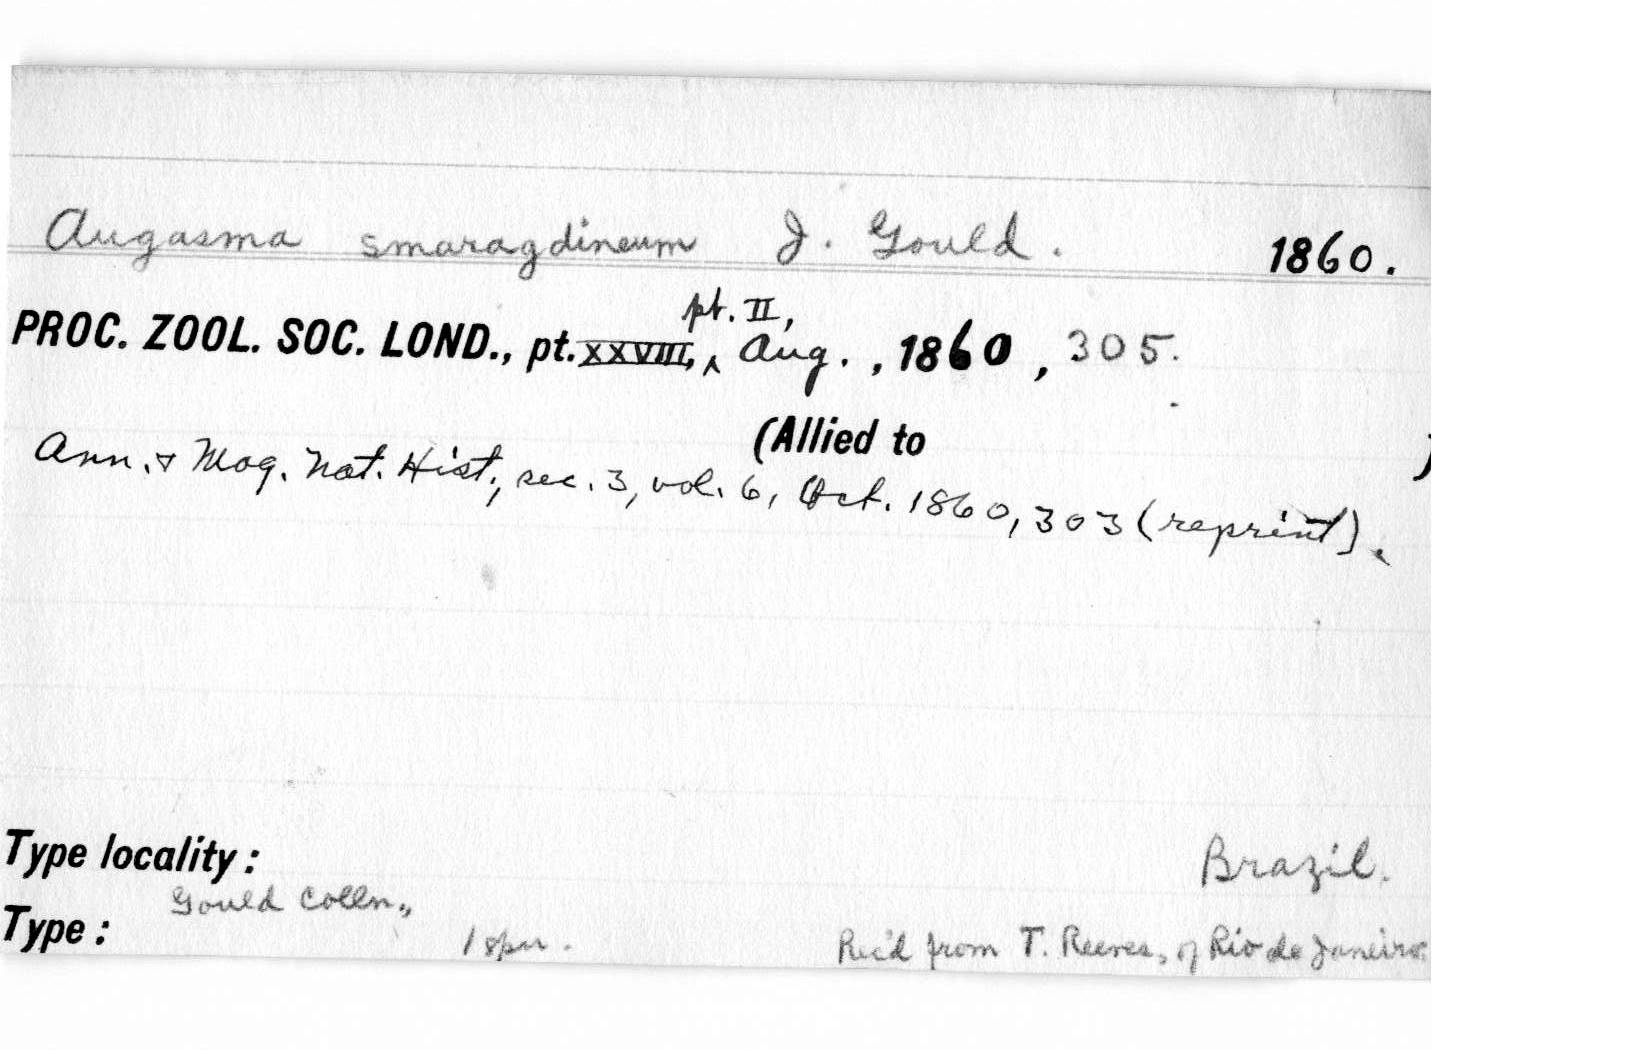 Augasma smaragdineum J. Gould. 1860.
pt. II,
PROC. ZOOL. SOC. LOND., pt. XXVIII, ‸ Aug. , 1860 , 305.
(Allied to )
Ann. & Mag. Nat. Hist., sec. 3, vol. 6, Oct. 1860, 303 (reprint).
Type locality: Brazil.
Gould Colln.,
Type: 1 spn. Rec'd from T. Reeves, of Rio de Janeiro.